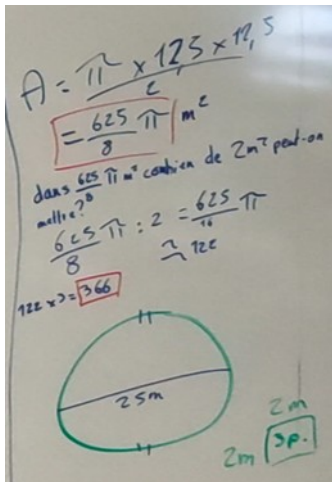 A = π × 12,5 × 12,5
2
= 625/8 π m²
dans 625/8 π m² combien de 2m² peut-on
mettre?
625/8 π : 2 = 625/16 π
≈ 122
122 x 3 = 366
25m
2m
2m 3p.